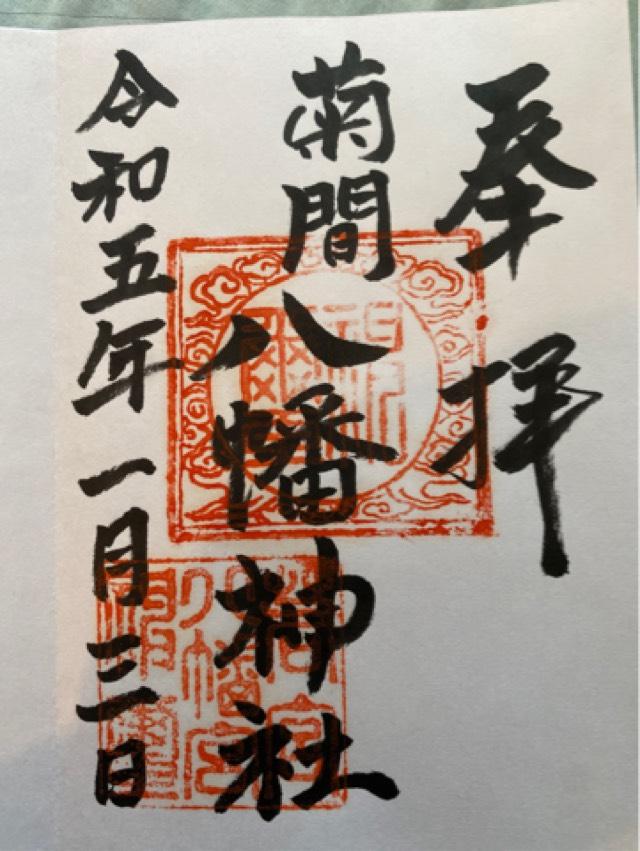 奉拝
菊間八幡神社
令和五年一月三日